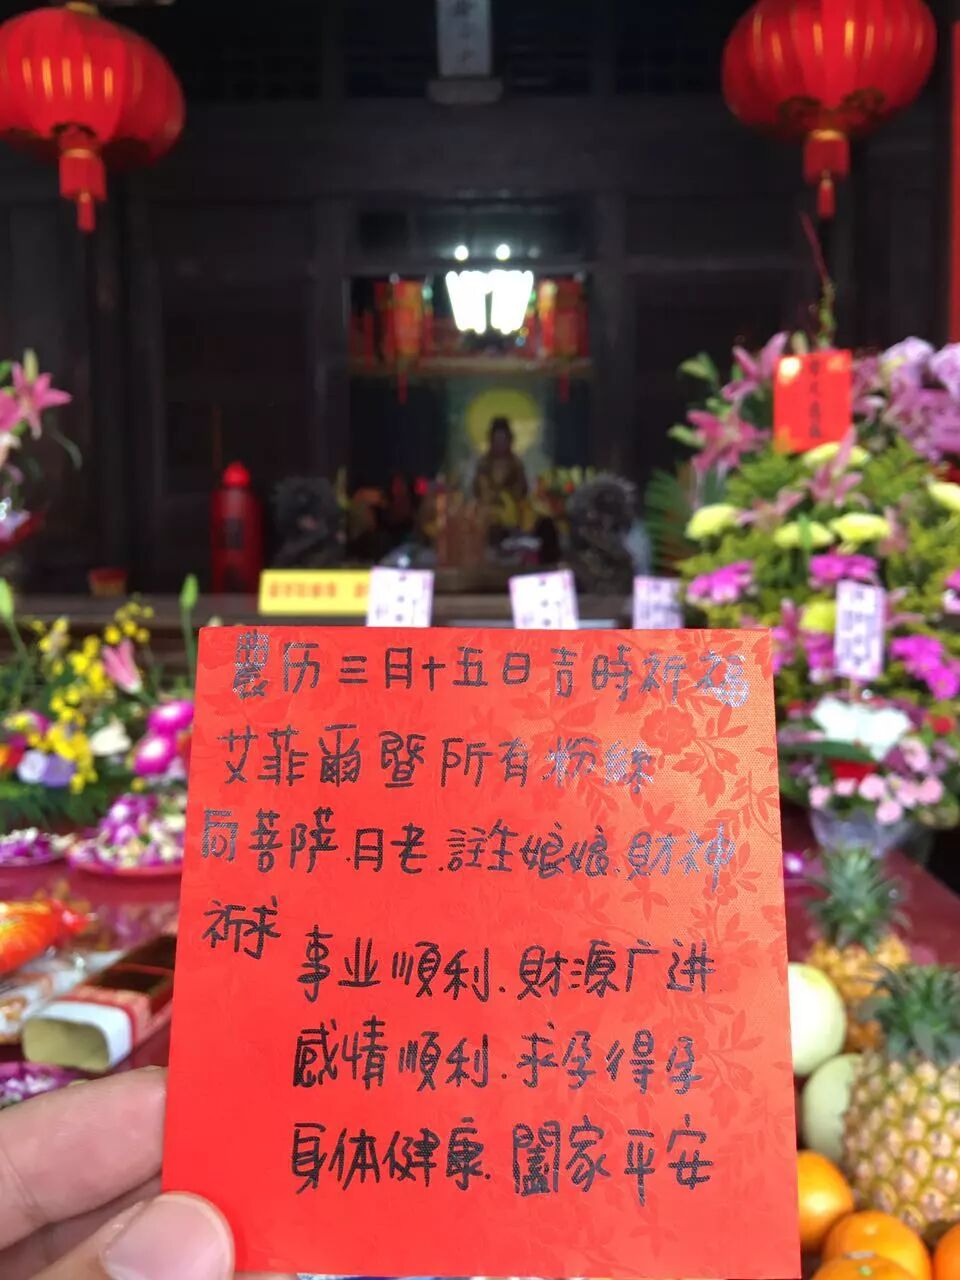 農历三月十五日吉時祈福
艾菲爾暨所有粉絲
向菩薩.月老.註生娘娘.財神
祈求
事业順利.財源广进
感情順利.求孕得孕
身体健康.闔家平安